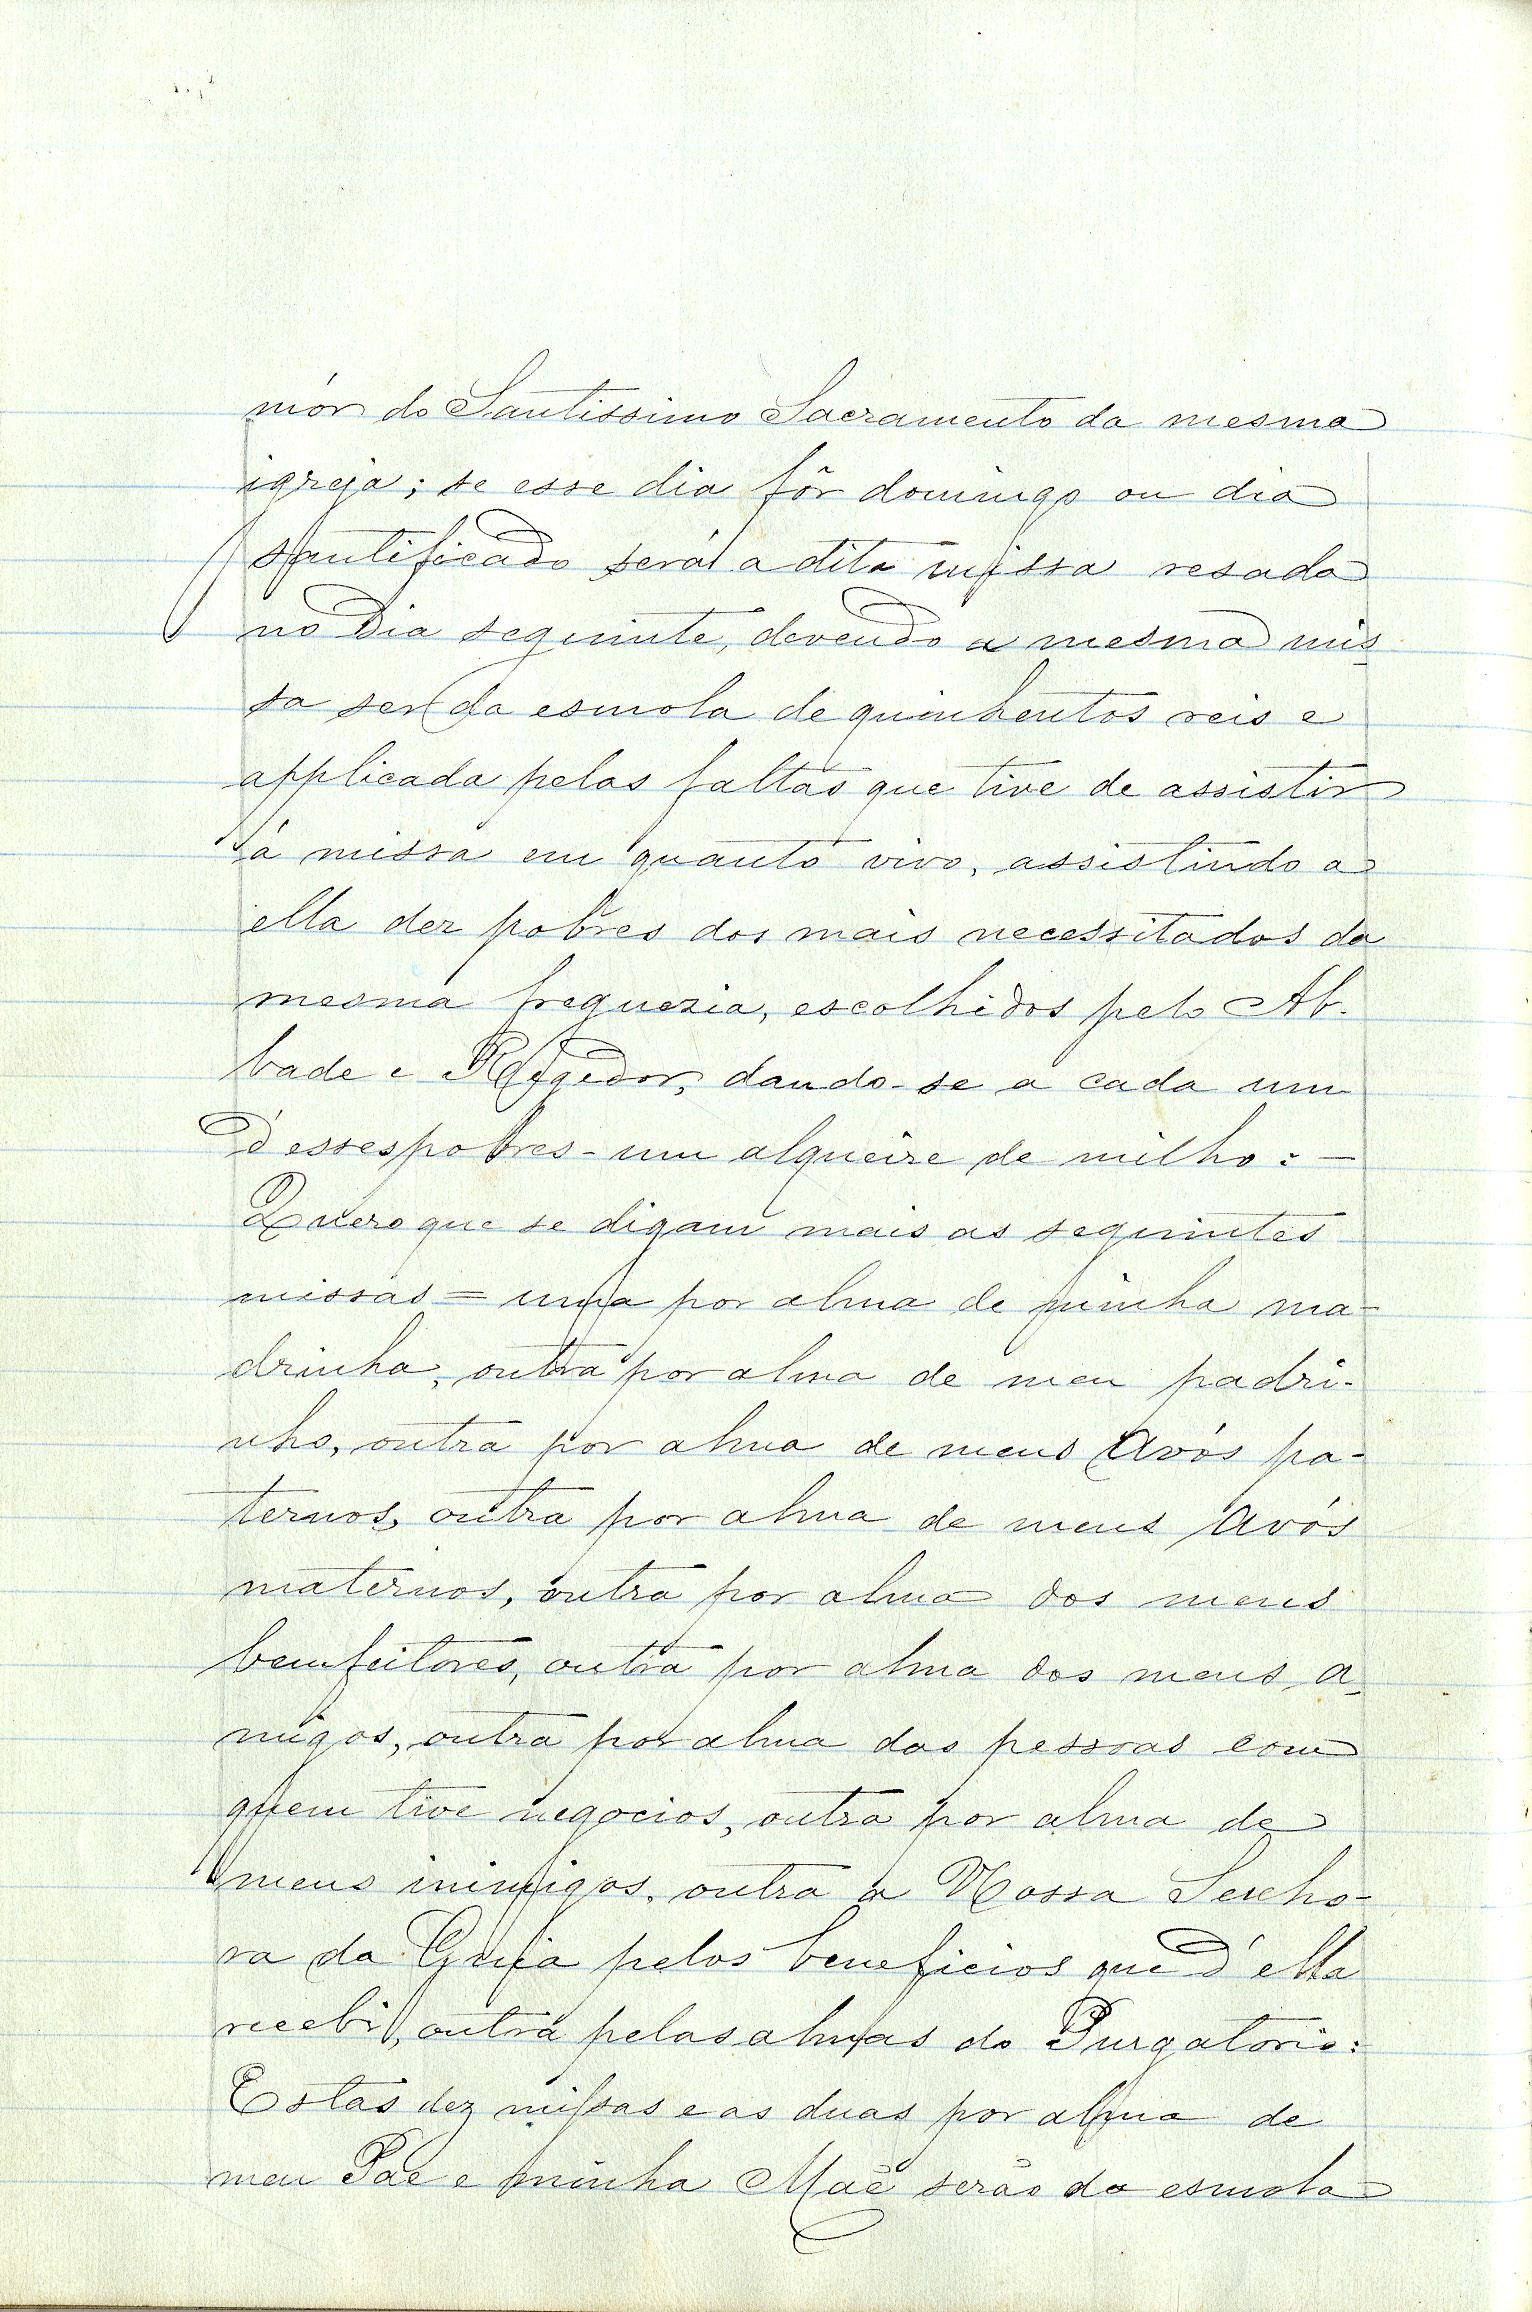 mór do Santissimo Sacramento da mesma
igreja; se esse dia fôr domingo ou dia
santificado será a dita missa resada
no dia seguinte, devendo a mesma mis-
sa ser da esmola de quinhentos reis e
applicada pelas faltas que tive de assistir
á missa em quanto vivo, assistindo a
ella dez pobres dos mais necessitados da
mesma freguezia, escolhidos pelo Ab-
bade e Regedor, dando-se a cada um
d'esses pobres - um alqueire de milho: —
Quero que se digam mais as seguintes
missas = uma por alma de minha ma-
drinha, outra por alma de meu padri-
nho, outra por alma de meus Avós pa-
ternos, outra por alma de meus Avós
maternos, outra por alma dos meus
bemfeitores, outra por alma dos meus a-
migos, outra por alma das pessoas com
quem tive negocios, outra por alma de
meus inimigos, outra a Nossa Senho-
ra da Guia pelos beneficios que d'ella
recebi, outra pelas almas do Purgatorio:
Estas dez missas e as duas por alma de
meu Pae e minha Mãe serão da esmola